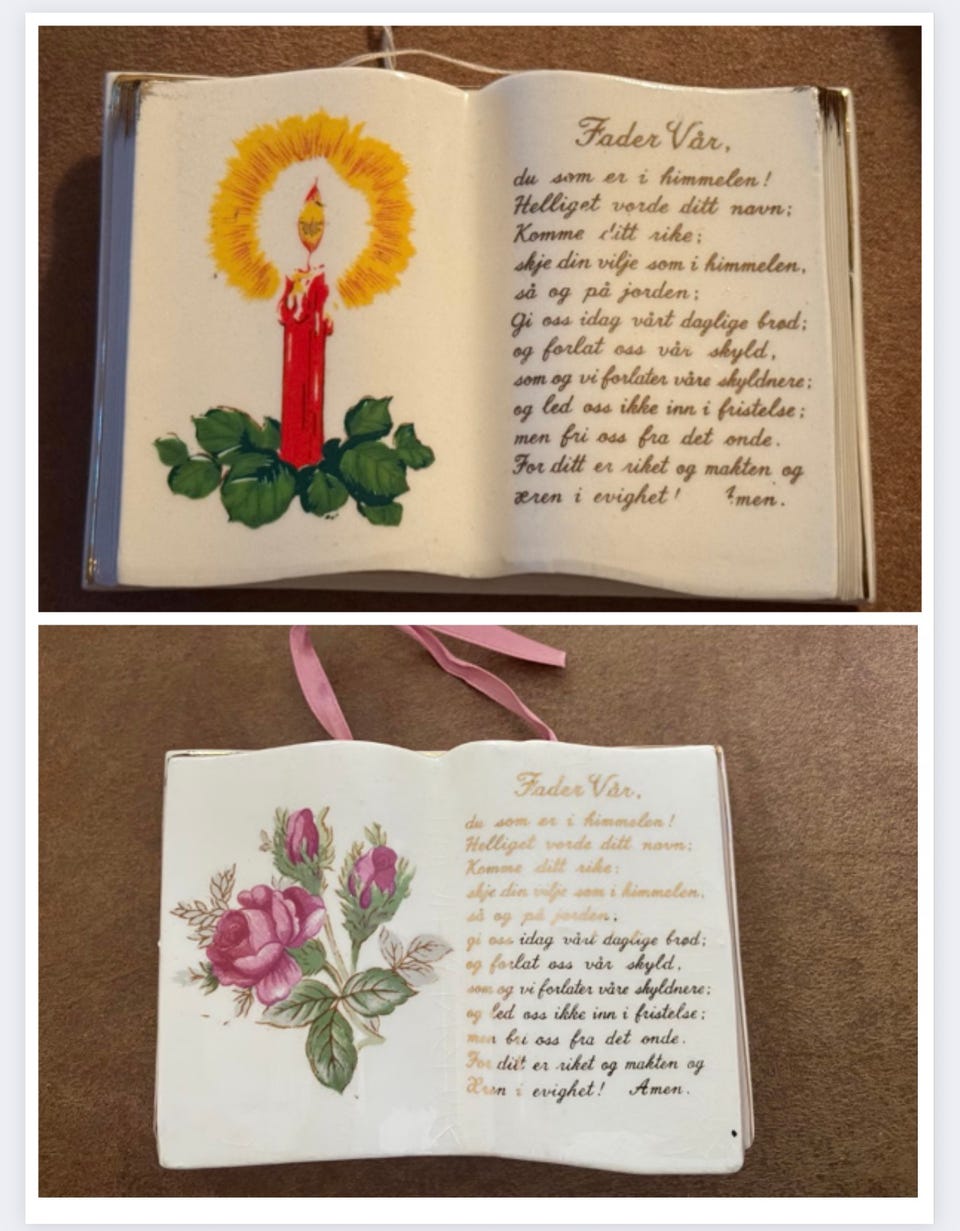 Fader Vår,
du som er i himmelen!
Helliget vorde ditt navn;
Komme ditt rike;
skje din vilje som i himmelen,
så og på jorden;
Gi oss idag vårt daglige brød;
og forlat oss vår skyld,
som og vi forlater våre skyldnere;
og led oss ikke inn i fristelse;
men fri oss fra det onde.
For ditt er riket og makten og
æren i evighet! Amen.
Fader Vår,
du som er i himmelen!
Helliget vorde ditt navn;
Komme ditt rike;
skje din vilje som i himmelen,
så og på jorden;
gi oss idag vårt daglige brød;
og forlat oss vår skyld,
som og vi forlater våre skyldnere;
og led oss ikke inn i fristelse;
men fri oss fra det onde.
For ditt er riket og makten og
Æren i evighet! Amen.